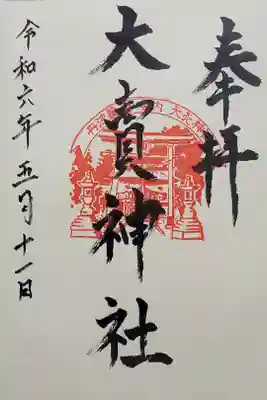 奉拝
大賣神社
令和六年五月十一日